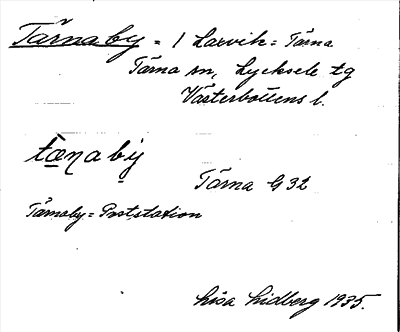 Tärnaby = 1 Laxvik = Tärna
Tärna sn, Lycksele tg
Västerbottens l.
tæ̱ṇabi̬y
Tärna G 32
Tärnaby = Poststation
Lisa Lidberg 1935.